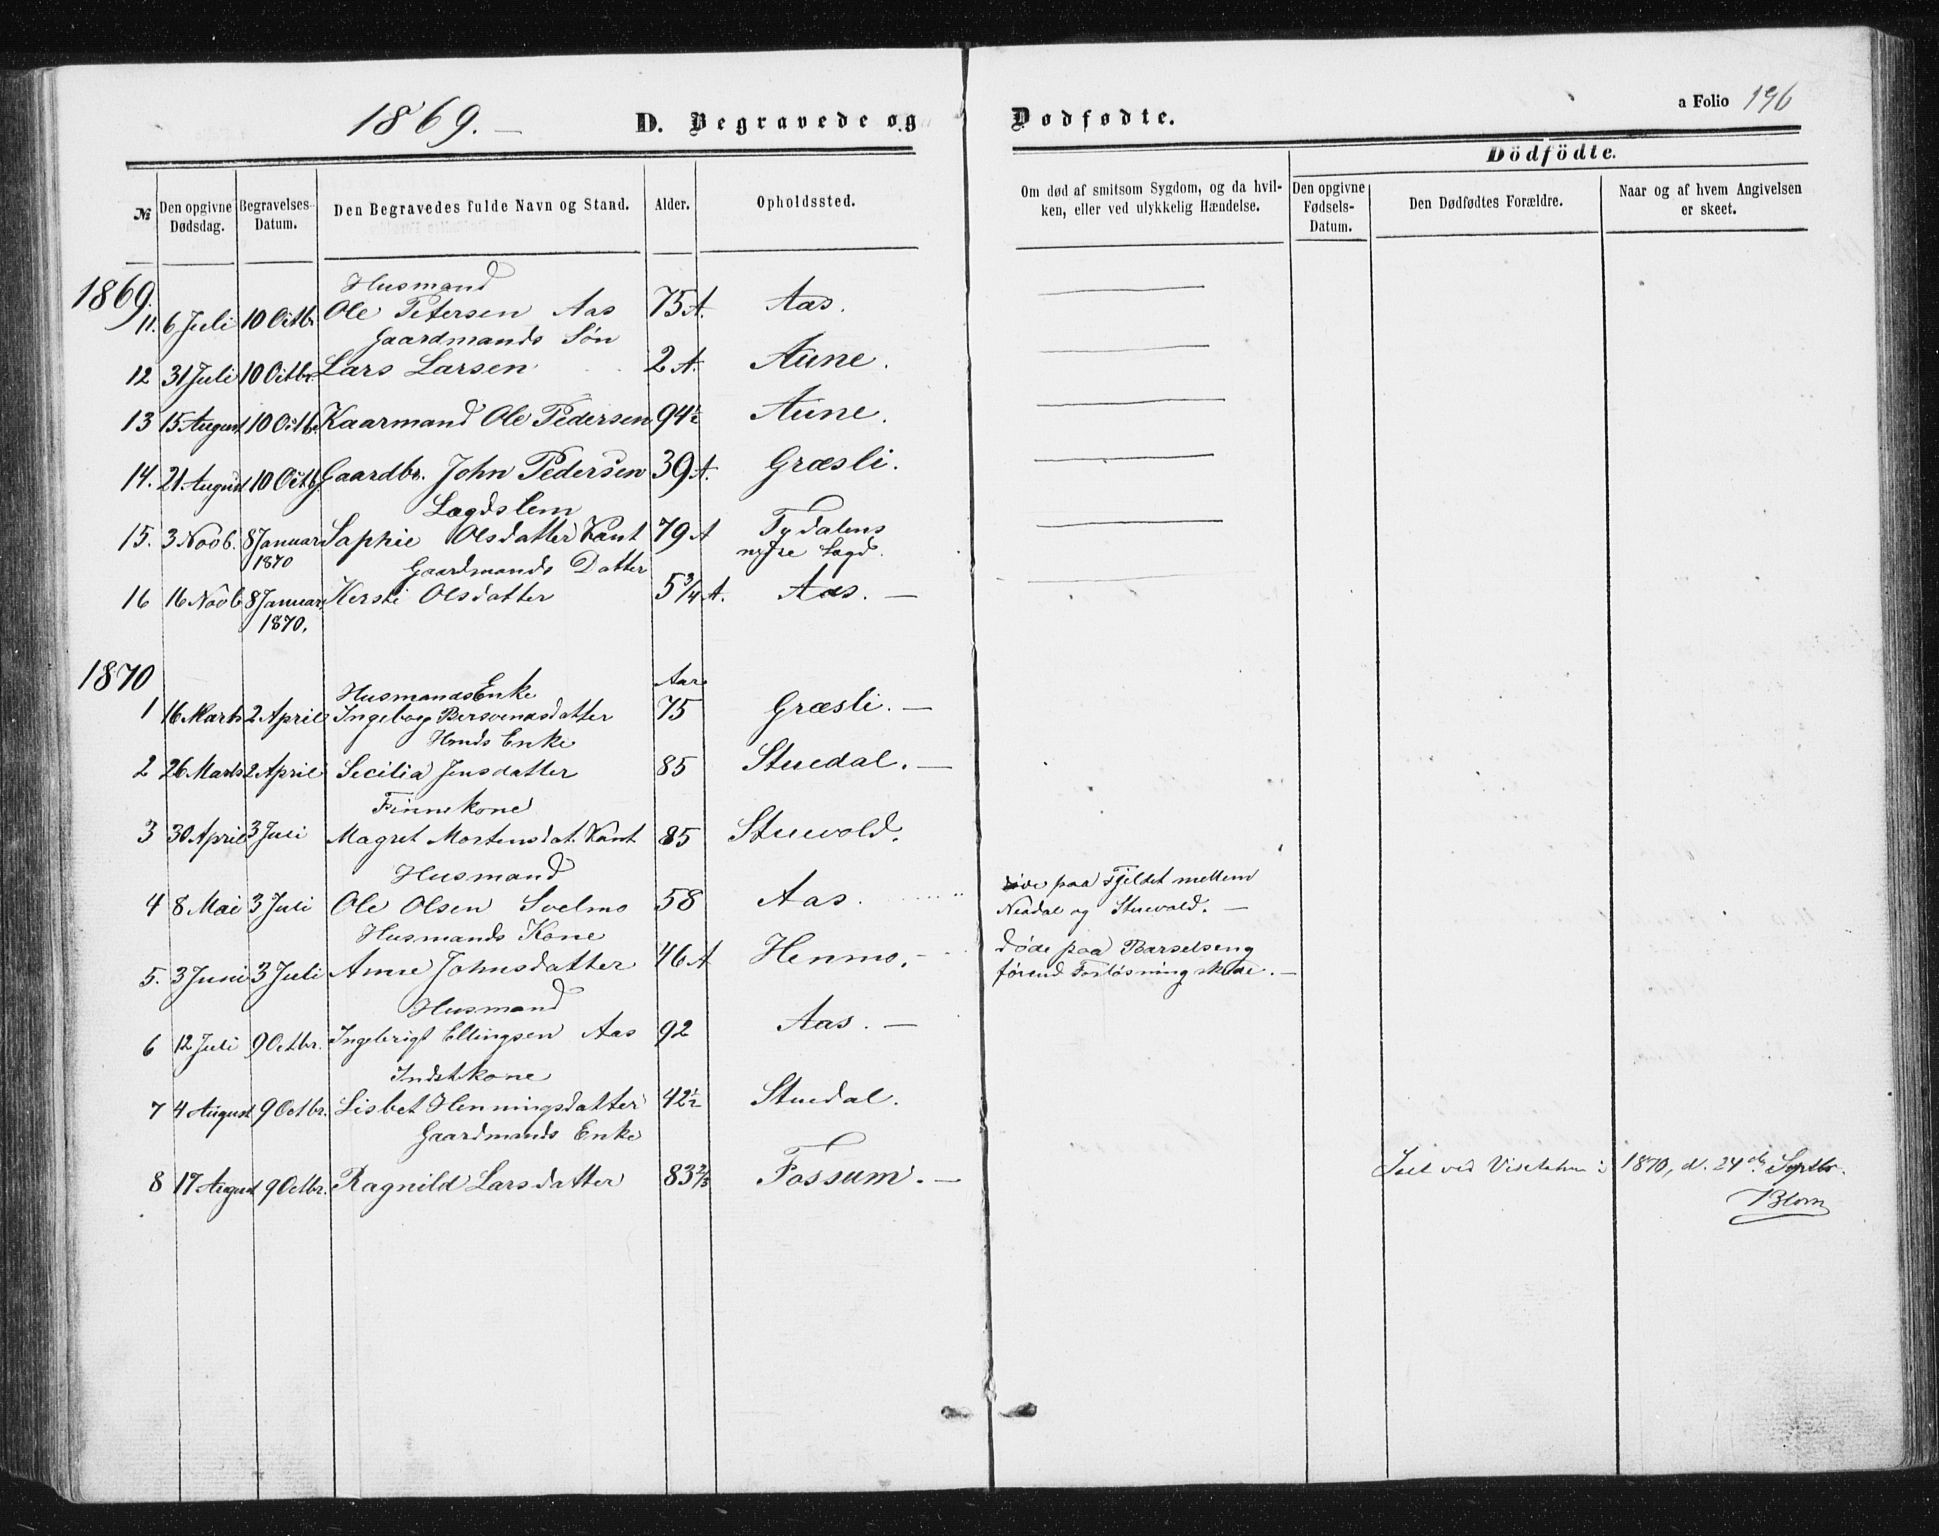 1869.— D. Begravede og Dødfødte. a Folio 196
Dödfödte.
№ Den opgivne Dødsdag. Begravelses-Datum. Den Begravedes fulde Navn og Stand. Alder. Opholdssted. Om død af smitsom Sygdom, og da hvil-ken, eller ved ulykkelig Hændelse. Den opgivne Fødsels-Datum. Den Dødfødtes Forældre. Naar og af hvem Angivelsen er skeet.
1869.
Husmand
11. 6 Juli 10 Octbr. Ole Petersen Aas 75 A. Aas.
Gaardmands Søn
12 31 Juli 10 Octbr. Lars Larsen 2 A. Aune.
13 15 August 10 Octb. Kaarmand Ole Pedersen 94½ Aune.
14. 21 August 10 Octb. Gaardbr. John Pedersen 39 A. Græsli.
Lægdslem
15. 3 Novb. 8 Januar 1870 Sophie Olsdatter Kant 79 A Tydalens nedre Lægd.
Gaardmands Datter
16 16 Novb 8 Januar 1870. Kersti Olsdatter 5¾ A. Aas. —
1870
Aar
Husmands Enke
1 16 Marts 2 April Ingeborg Bersvendsdatter 75 Græsli. —
Hmds Enke
2 26 Marts 2 April Secilia Jensdatter 85 Stuedal. —
Finnekone
3 30 April 3 Juli Magret Mortensdat. Kant 85 Stuevold.
Husmand
4 8 Mai 3 Juli Ole Olsen Svelmo 58 Aas. døde paa Fjeldet mellem
Neadal og Stuevold. —
Husmands Kone
5. 3 Juni 3 Juli Anne Johnsdatter 46 A Henmo. — døde paa Barselseng
førend Forløsning skede. —
Husmand
6 12 Juli 9 Octbr. Ingebrigt Ellingsen Aas 92 Aas. —
Indstkone
7 4 August 9 Octbr. Lisbet Henningsdatter 42½ Stuedal.
Gaardmands Enke
8 17 August 9 Octbr. Ragnild Larsdatter 83⅔ Fossum. —
Seet ved Visitatsen i 1870, d. 24de Septbr.
Blom